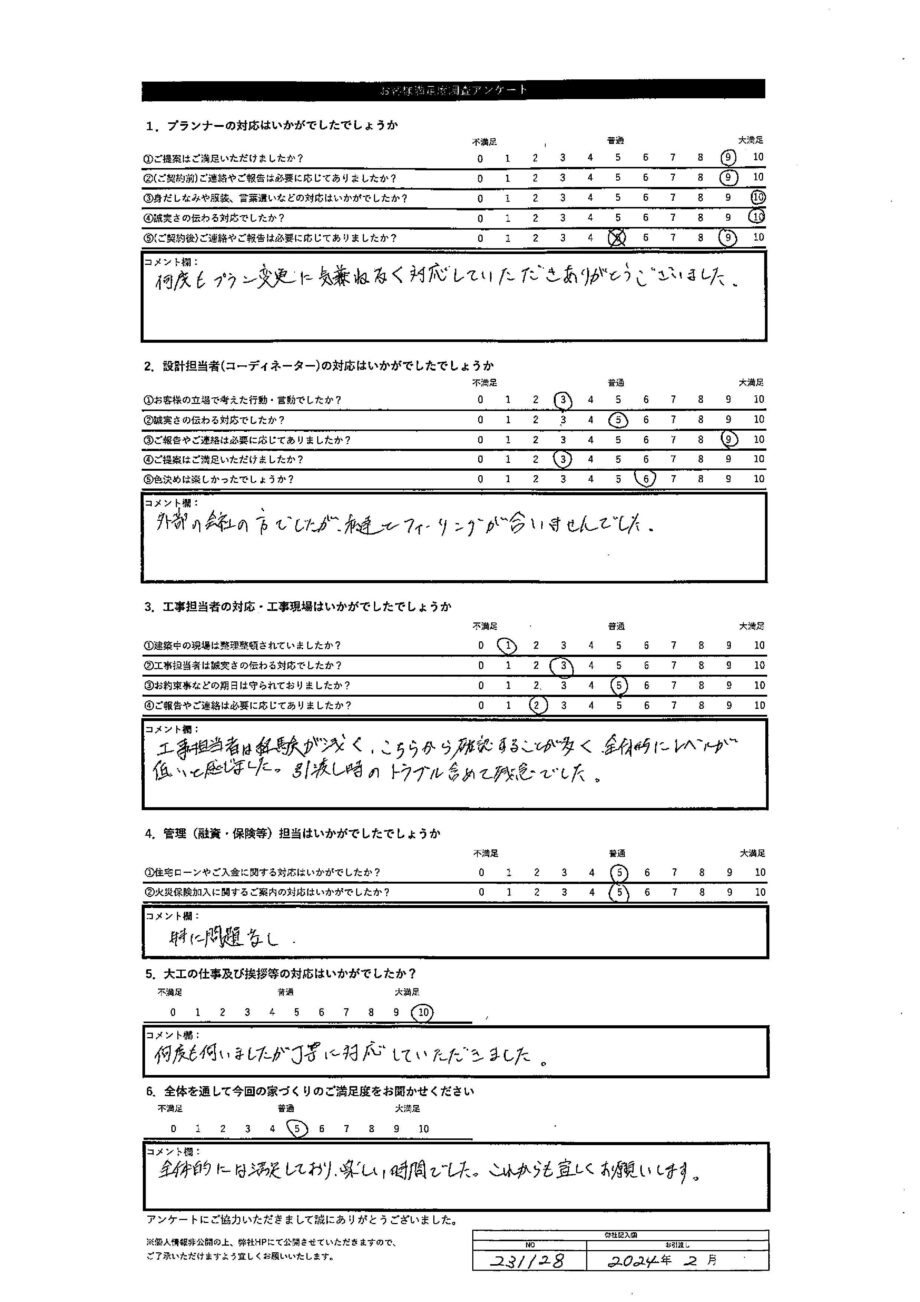 お客様満足度調査アンケート
1．プランナーの対応はいかがでしたでしょうか
不満足 普通 大満足
①ご提案はご満足いただけましたか？ 0 1 2 3 4 5 6 7 8 9 10
②(ご契約前)ご連絡やご報告は必要に応じてありましたか？ 0 1 2 3 4 5 6 7 8 9 10
③身だしなみや服装、言葉遣いなどの対応はいかがでしたか？ 0 1 2 3 4 5 6 7 8 9 10
④誠実さの伝わる対応でしたか？ 0 1 2 3 4 5 6 7 8 9 10
⑤(ご契約後)ご連絡やご報告は必要に応じてありましたか？ 0 1 2 3 4 5 6 7 8 9 10
コメント欄：
何度もプラン変更に気兼ねなく対応していただきありがとうございました。
2．設計担当者(コーディネーター)の対応はいかがでしたでしょうか
不満足 普通 大満足
①お客様の立場で考えた行動・言動でしたか？ 0 1 2 3 4 5 6 7 8 9 10
②誠実さの伝わる対応でしたか？ 0 1 2 3 4 5 6 7 8 9 10
③ご報告やご連絡は必要に応じてありましたか？ 0 1 2 3 4 5 6 7 8 9 10
④ご提案はご満足いただけましたか？ 0 1 2 3 4 5 6 7 8 9 10
⑤色決めは楽しかったでしょうか？ 0 1 2 3 4 5 6 7 8 9 10
コメント欄：
外部の会社の方でしたが、私達とフィーリングが合いませんでした。
3．工事担当者の対応・工事現場はいかがでしたでしょうか
不満足 普通 大満足
①建築中の現場は整理整頓されていましたか？ 0 1 2 3 4 5 6 7 8 9 10
②工事担当者は誠実さの伝わる対応でしたか？ 0 1 2 3 4 5 6 7 8 9 10
③お約束事などの期日は守られておりましたか？ 0 1 2 3 4 5 6 7 8 9 10
④ご報告やご連絡は必要に応じてありましたか？ 0 1 2 3 4 5 6 7 8 9 10
コメント欄：
工事担当者は経験が浅く、こちらから確認することが多く 全体的にレベルが
低いと感じました。引渡し時のトラブル含めて残念でした。
4．管理（融資・保険等）担当はいかがでしたでしょうか
不満足 普通 大満足
①住宅ローンやご入金に関する対応はいかがでしたか？ 0 1 2 3 4 5 6 7 8 9 10
②火災保険加入に関するご案内の対応はいかがでしたか？ 0 1 2 3 4 5 6 7 8 9 10
コメント欄：
特に問題なし．
5．大工の仕事及び挨拶等の対応はいかがでしたか？
不満足 普通 大満足
0 1 2 3 4 5 6 7 8 9 10
コメント欄：
何度も伺いましたが丁寧に対応していただきました。
6．全体を通して今回の家づくりのご満足度をお聞かせください
不満足 普通 大満足
0 1 2 3 4 5 6 7 8 9 10
コメント欄：
全体的には満足しており、楽しい時間でした。これからも宜しくお願いします。
アンケートにご協力いただきまして誠にありがとうございました。
※個人情報非公開の上、弊社HPにて公開させていただきますので、
ご了承いただけますよう宜しくお願いいたします。
弊社記入欄
NO お引渡し
231128 2024年 2月